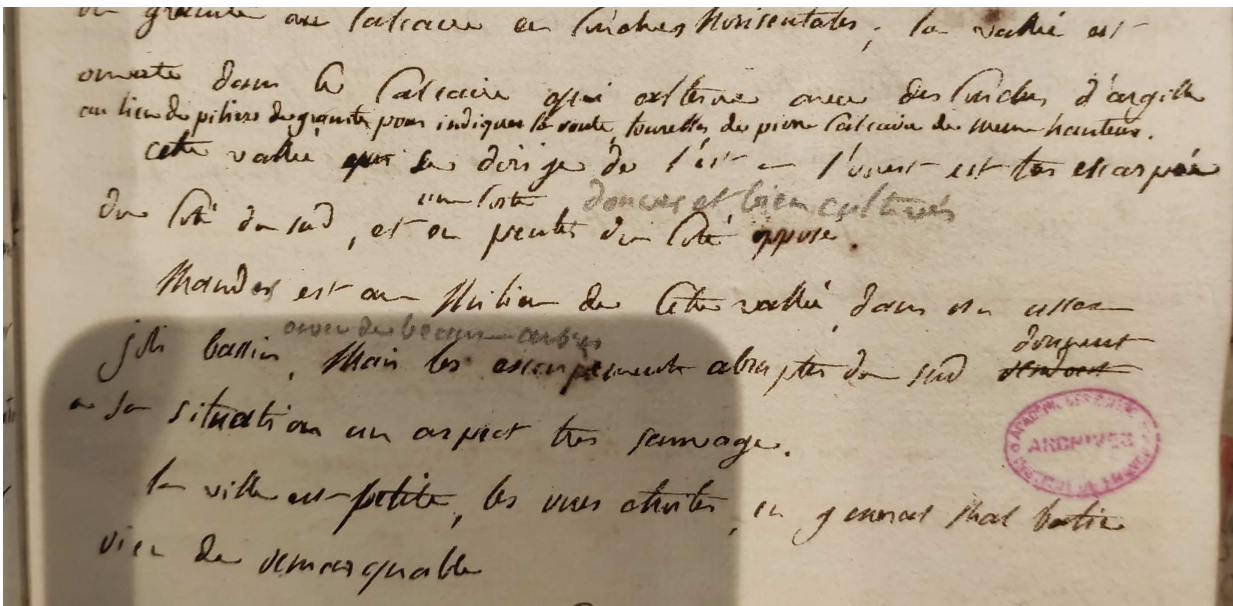 de granite ou calcaire en couches horisentales, la vallée est
ouverte dans le calcaire qui alterne avec des couches d'argille
au lieu de piliers de granite pour indiquer la route, tourelles de pierre calcaire de meme hauteur.
cette vallée qui se dirige de l'est a l'ouest est tres escarpée
une coste douces et bien cultivés
du coté du sud, et en pentes du coté opposé.
Mandes est au milieu de cette vallée, dans un assez
avec de beaux arbres donnent
joli bassin, Mais les escarpements abruptes du sud
a sa situation un aspect tres sauvage.
la ville est petite, les rues etroites, en general mal batie
rien de remarquable
ACADÉMIE DES SCIENCES
ARCHIVES
INSTITUT DE FRANCE